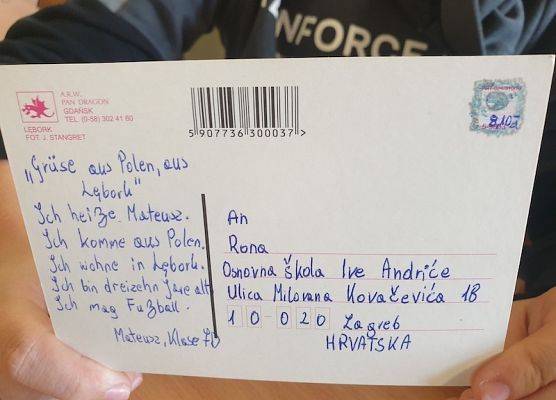 NFORCE
A.R.W.
PAN DRAGON
GDAŃSK
TEL. (0-58) 302 41 60
LĘBORK
FOT. J. STANGRET
5 907736 300037 >
"Grüse aus Polen, aus
Lębork"
Ich heiße Mateusz.
Ich komme aus Polen.
Ich wohne in Lębork.
Ich bin dreizehn Jare alt
Ich mag Fußball.
Mateusz, Klase
An
Rona
Osnovna škola Ive Andriće
Ulica Milovana Kovačevića 18
10-020 Zagreb
HRVATSKA